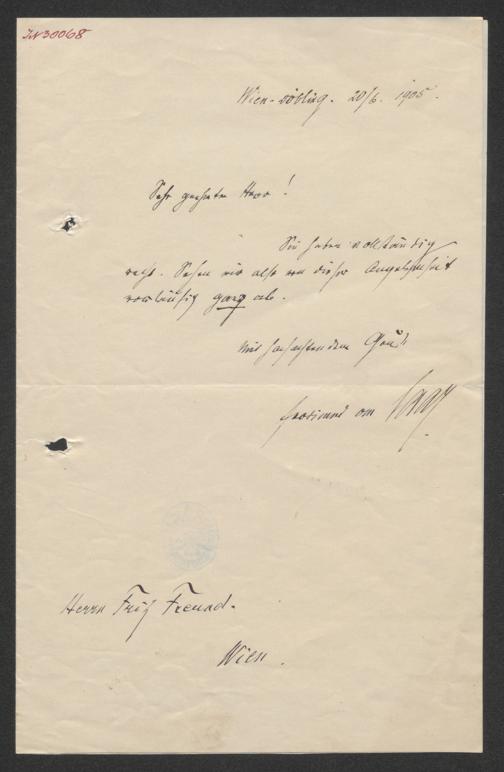 IN 30068
Wien-Döbling. 20/6. 1905.
Sehr geehrter Herr!
Sie haben vollständig
recht. Sehen wir also von dieser Angelegenheit
vorläufig ganz ab.
Mit hochachtendem Gruß
Ferdinand von Saar
Herrn Fritz Freund.
Wien.